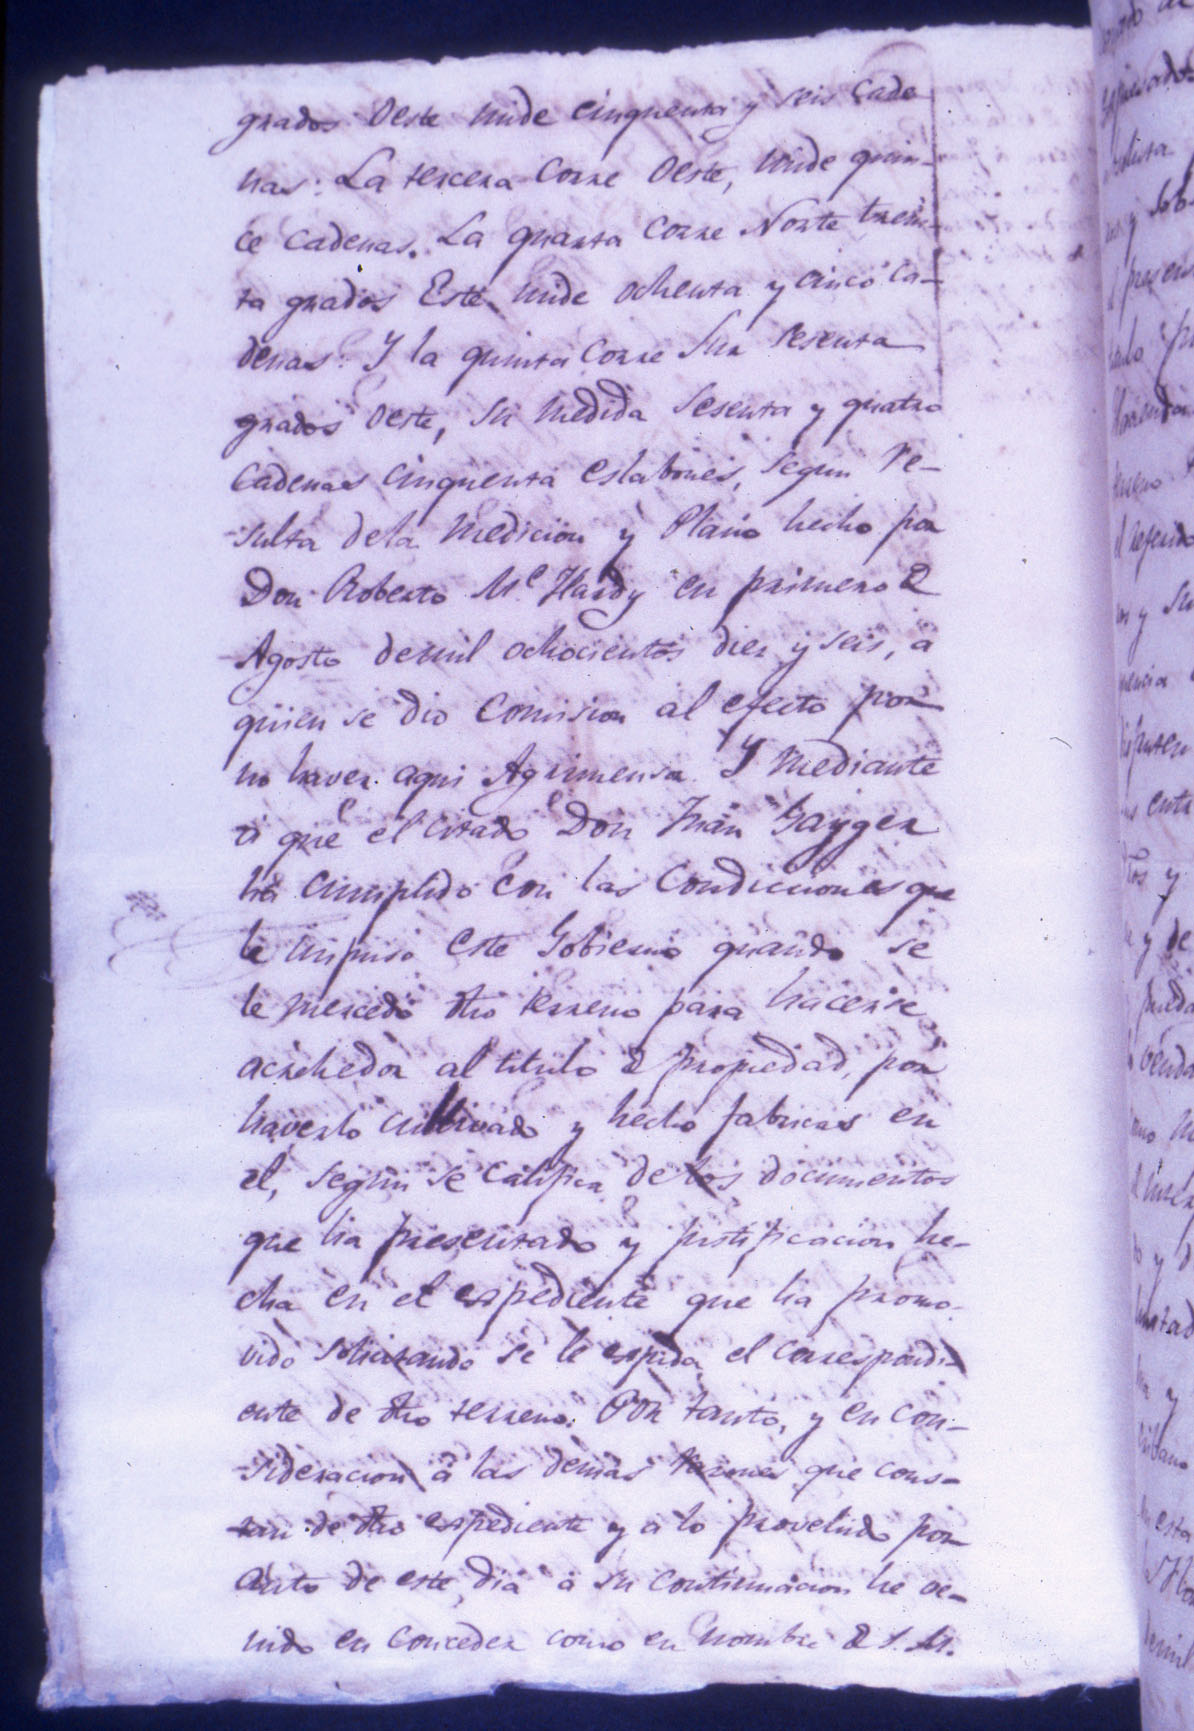 grados Oeste mide cinquenta y seis cade
nas: La tercera Corre Oeste, mide quin-
ce cadenas. La quarta corre Norte trein-
ta grados Este mide ochenta y cinco ca-
denas: Y la quinta Corre Sur sesenta
grados Oeste, su medida Sesenta y quatro
cadenas cinquenta eslabones, segun re-
sulta dela Medicion y Plano hecho por
Don Roberto Mc. Hardy en primero de
Agosto demil ochocientos diez y seis, a
quien se dio comision al efecto por
no haver aqui Agrimensor. Y mediante
á que el citado Don Juan Gayger
ha cumplido con las Condicciones que
le impuso este Gobierno quando se
le mercedó dho terreno para hacerse
acrehedor al titulo de propiedad, por
haverlo cultivado y hecho fabricas en
el, segun se califica de los documentos
que ha presentado y justificacion he-
cha en el espediente que ha promo-
vido solicitando se le espida el correspondi-
ente de dho terreno: Por tanto, y en con-
sideracion á las demas razones que cons-
tan de dho espediente y a lo provehido por
Auto de este dia á su continuacion he ve-
nido en conceder como en nombre de S. M.